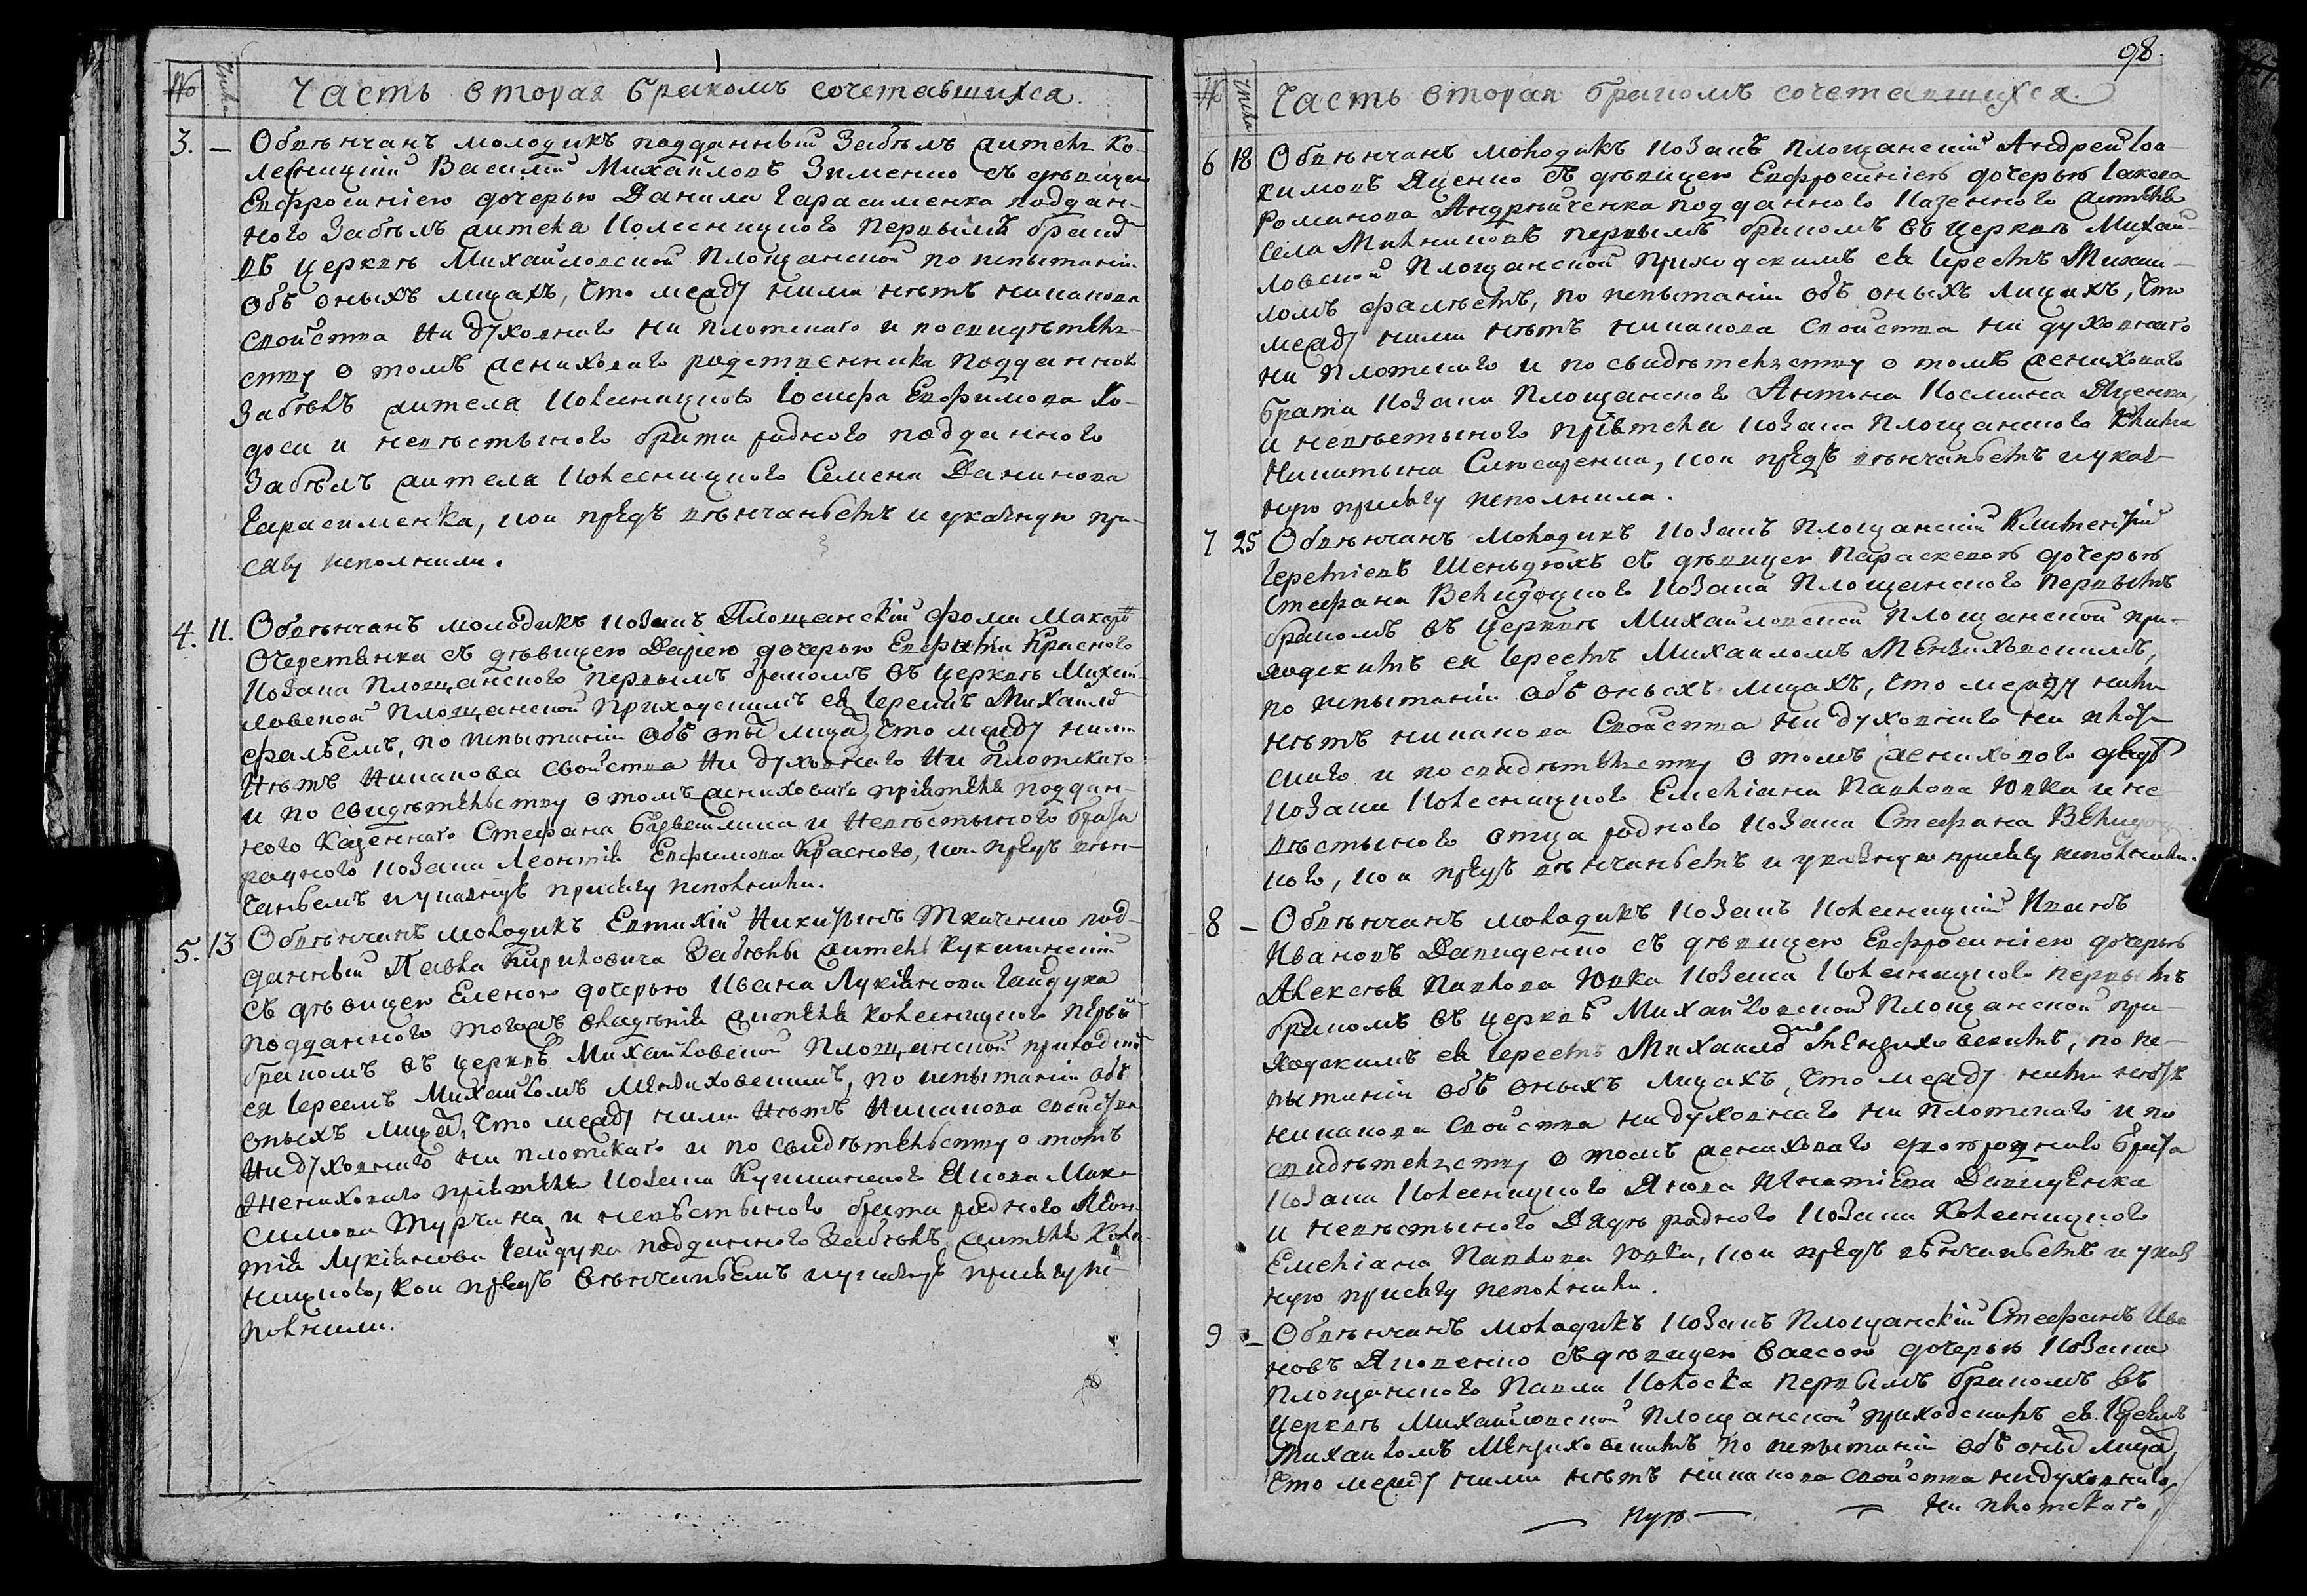 № Числа Часть вторая бракомъ сочетавшихся.
3. — Обвѣнчанъ молодикъ подданный Забѣлъ житель Ко-
лесницкій Василій Михайловъ Зименко съ дѣвицею
Евфросиніею дочерью Данила Гарасименка поддан-
ного Забѣлъ жителя колесницкого первымъ бракомъ
въ церквѣ Михайловской Площанской по испытаніи
объ оныхъ лицахъ, что между ними нѣтъ никакова
свойства ни духовнаго ни плотскаго и по свидѣтель-
ству о томъ жениховаго родственника подданного
Забѣлъ жителя колесницкого Іосифа Евфимова Хо-
доси и невѣстыного брата родного подданного
Забѣлъ жителя колесницкого Семена Данилова
Гарасименка, кои предъ вѣнчаніемъ и указную при-
сягу исполнили.
4. 11. Обвѣнчанъ молодикъ козакъ Площанскій Фома Макаровъ
Очеретянка съ дѣвицею Даріею дочерью Евфиміа Красного
козака Площанского первымъ бракомъ въ церквѣ Михай-
ловской Площанской приходскимъ ея Іереемъ Михаиломъ
, по испытаніи объ оныхъ лицахъ, что между ними
нѣтъ никакова свойства ни духовнаго ни плотскаго
и по свидѣтельству о томъ жениховаго пріятеля поддан-
ного казеннаго Стефана и невѣстыного брата
родного козака Леонтія Евфимова Красного, кои предъ вѣн-
чаніемъ и указную присягу исполнили.
5. 13 Обвѣнчанъ молодикъ Евтихій Никитинъ Ткаченко под-
данный Павла Кириловича Забѣлы житель кукшинскій
съ дѣвицею Еленою дочерью Ивана Лукіянова Гайдука
подданного тогожъ владѣнія жителя колесницкого первымъ
бракомъ въ церквѣ Михайловской Площанской приходскимъ
ея Іереемъ Михаиломъ , по испытаніи объ
оныхъ лицахъ, что между ними нѣтъ никакова свойства
ни духовнаго ни плотскаго и по свидѣтельству о томъ
жениховаго пріятеля козака Кукшинского Якова Мак-
симова Турчина, и невѣстыного брата родного Леон-
тія Лукіянова Гайдука подданного Забѣлъ жителя Колес-
ницкого, кои предъ вѣнчаніемъ и указную присягу ис-
полнили.
98.
№ Числа Часть вторая бракомъ сочетавшихся.
6 18 Обвѣнчанъ молодикъ козакъ площанскій Андрей Іоа-
кимовъ Яценко съ дѣвицею Евфросиніею дочерью Іакова
Романова Андрѣйченка подданного казенного жителя
села первымъ бракомъ въ церквѣ Михай-
ловской Площанской приходскимъ ея Іереемъ Михаи-
ломъ , по испытаніи объ оныхъ лицахъ, что
между ними нѣтъ никакова свойства ни духовнаго
ни плотскаго и по свидѣтельству о томъ жениховаго
брата козака Площанского Антона Космина Яценка,
и невѣстыного пріятеля козака площанского
Никитына , кои предъ вѣнчаніемъ и указ-
ную присягу исполнили.
7 25 Обвѣнчанъ молодикъ козакъ площанскій Климентій
Шеньдюхъ съ дѣвицею Параскевою дочерью
Стефана козака Площанского первымъ
бракомъ въ церквѣ Михайловской Площанской при-
ходскимъ ея Іереемъ Михаиломъ ,
по испытаніи объ оныхъ лицахъ, что между ними
нѣтъ никакова свойства ни духовнаго ни плот-
скаго и по свидѣтельству о томъ жениховаго дяди
козака колесницкого Емеліана Павлова Юрка и не-
вѣстыного отца родного козака Стефана
ного, кои предъ вѣнчаніемъ и указную присягу исполнили.
8 — Обвѣнчанъ молодикъ козакъ колесницкій Иванъ
Ивановъ Давиденко съ дѣвицею Евфросиніею дочерью
Алексѣя Павлова Юрка козака колесницкого первымъ
бракомъ въ церквѣ Михайловской Площанской при-
ходскимъ ея Іереемъ Михаиломъ , по ис-
пытаніи объ оныхъ лицахъ, что между ними нѣтъ
никакова свойства ни духовнаго ни плотскаго и по
свидѣтельству о томъ жениховаго двоюроднаго брата
козака колесницкого Якова Игнатіева Давиденка
и невѣстыного дяди родного козака Колесницкого
Емеліана Павлова Юрка, кои предъ вѣнчаніемъ и указ-
ную присягу исполнили.
9 — Обвѣнчанъ молодикъ козакъ площанскій Стефанъ Ива-
новъ Яковенко съ дѣвицею Вассою дочерью козака
площанского Павла первымъ бракомъ въ
церквѣ Михайловской площанской приходскимъ ея Іереемъ
Михаиломъ по испытаніи объ оныхъ лицахъ,
что между ними нѣтъ никакова свойства ни духовнаго,
ни плотскаго,